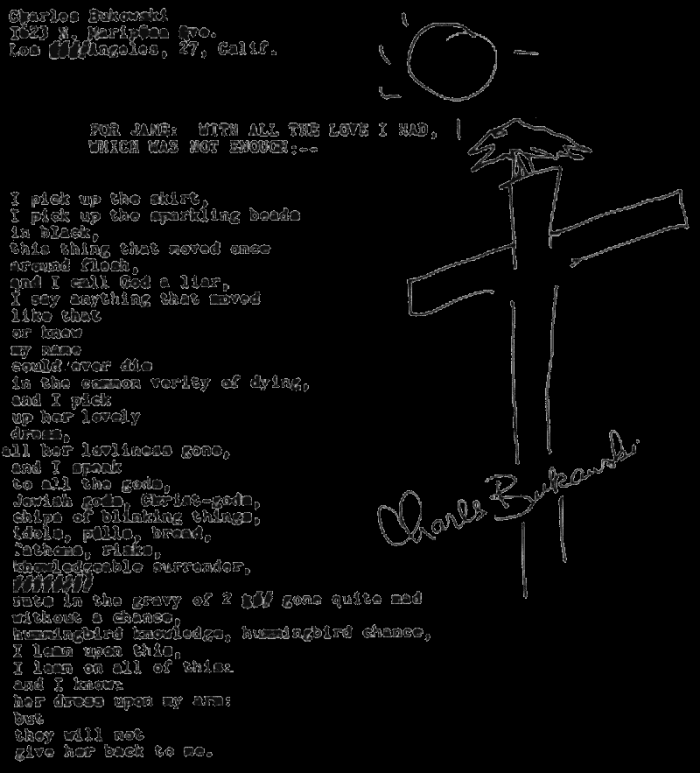 Charles Bukowski
1623 N. Mariposa Ave.
Los Angeles, 27, Calif.
FOR JANE: WITH ALL THE LOVE I HAD,
WHICH WAS NOT ENOUGH:--
I pick up the skirt,
I pick up the sparkling beads
in black,
this thing that moved once
around flesh,
and I call God a liar,
I say anything that moved
like that
or knew
my name
could ever die
in the common verity of dying,
and I pick
up her lovely
dress,
all her lovliness gone,
and I speak
to all the gods,
Jewish gods, Christ-gods,
chips of blinking things,
idols, pills, bread,
fathoms, risks,
knowledgeable surrender,
rats in the gravy of 2 gone quite mad
without a chance,
hummingbird knowledge, hummingbird chance,
I lean upon this,
I lean on all of this:
and I know:
her dress upon my arm:
but
they will not
give her back to me.
Charles Bukowski